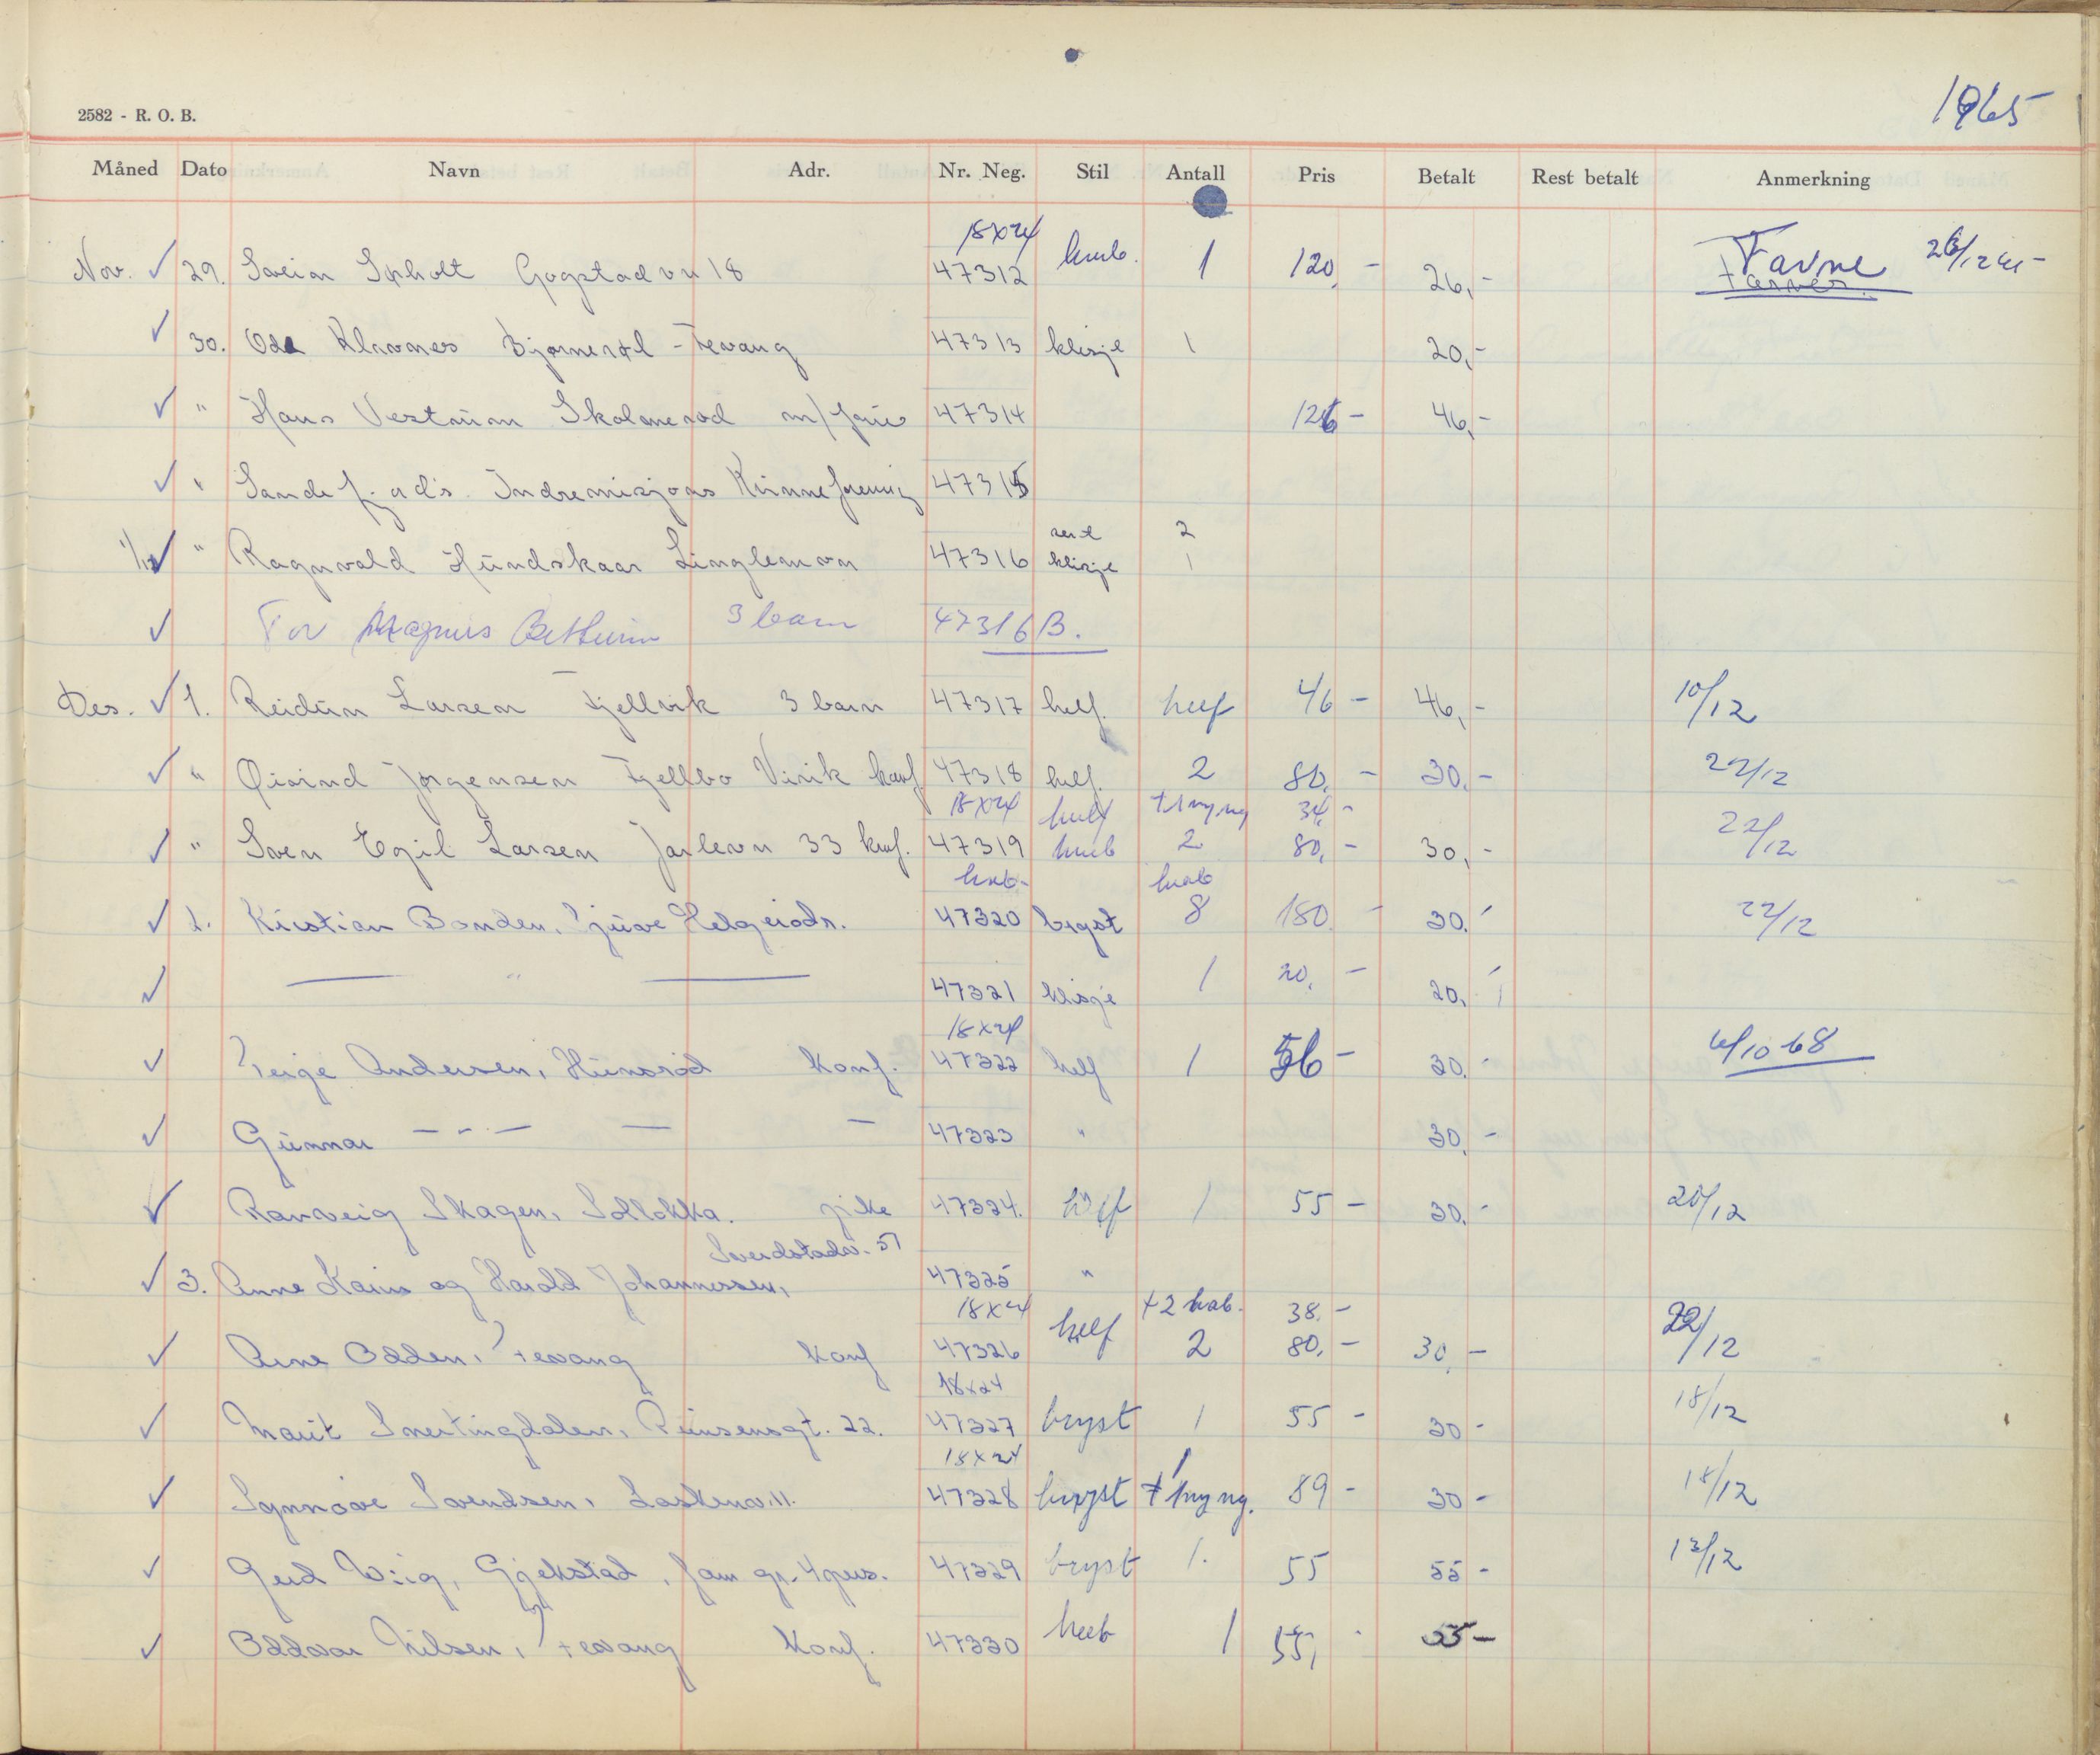 1965
2582 - R. O. B.
Måned Dato Navn Adr. Nr. Neg. Stil Antall Pris Betalt Rest betalt Anmerkning
18x24
Nov. ✓ 29. Svein Gogstad vn 18 47312 1 120,- 26,- Farve
✓ 30. Oda Klavnes - Tevang 47313 klisje 1 20,-
✓ " Hans Vestrum Skolmerød m/ 47314 126 - 46,-
✓ " Sandefj. Indremisjons Kvinneforening 47315
2
1/12 ✓ " Ragnvald Hundskaar 47316 klisje 1
✓ Tor Magnus 3 barn 47316 B.
Des. ✓ 1. Reidun Larsen Fjellvik 3 barn 47317 helf. helf 46 - 46,- 10/12
✓ " Øivind Jørgensen Fjellbo Virik konf 47318 helf. 2 80,- 30,- 22/12
18x24 34,-
✓ " Sven Egil Larsen Jarlevn 33 konf. 47319 2 80,- 30,- 22/12
kab. kab
✓ 2. Kristian Bonden, 47320 bryst 8 180 - 30.- 22/12
✓ — " — 47321 klisje 1 20,- 20,-
18x24
✓ Terje Andersen, Hunsrød Konf. 47322 helf 1 56 - 30.- 4/10 68
✓ Gunnar — " — — — 47323 " 30,-
✓ Ranveig Skagen, Solløkka. pike 47324. 1 55 - 30.- 20/12
51
✓ 3. Anne Karin og Harald Johannessen, 47325 "
18x24 +2 kab. 38,-
✓ Arne Odden, Tevang Konf 47326 helf 2 80,- 30,- 22/12
18x24
✓ Marit Snertingdalen, 22. 47327 bryst 1 55 - 30 - 18/12
18x24 1
✓ Synnøve Svendsen, 11. 47328 bryst 89 - 30 - 18/12
✓ Gerd Wiig, Gjekstad, fam gr. 4 pers. 47329 bryst 1. 55 55 - 13/12
✓ Oddvar Nilsen, Tevang Konf. 47330 1 55,- 55 -